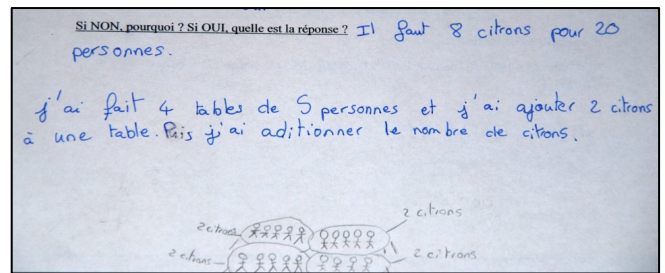 Si NON, pourquoi ? Si OUI, quelle est la réponse ? Il faut 8 citrons pour 20
personnes.
j'ai fait 4 tables de 5 personnes et j'ai ajouter 2 citrons
à une table. Puis j'ai aditionner le nombre de citrons.
2 citrons
2 citrons
2 citrons 2 citrons